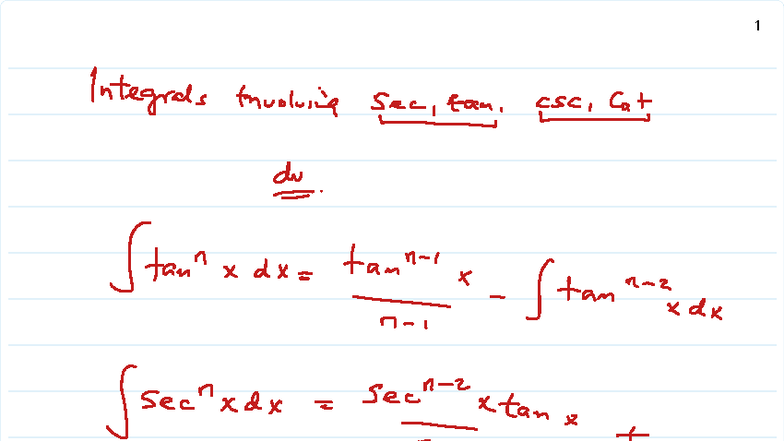 1
Integrals involving sec, tan, csc, cot
du
∫ tan^n x dx = tan^{n-1} x / n-1 - ∫ tan^{n-2} x dx
∫ sec^n x dx = sec^{n-2} x tan x